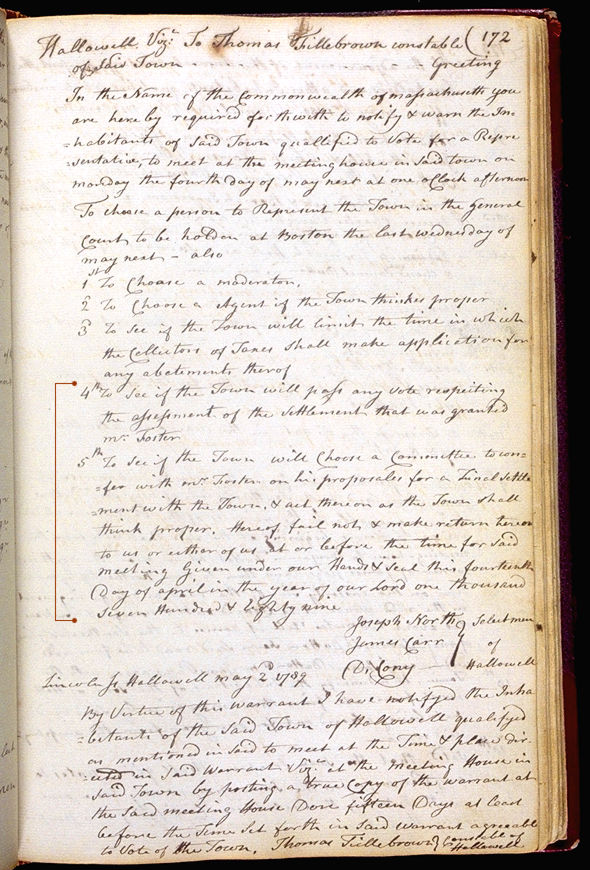 Hallowell. Viz: To Thomas Fillebrown constable (172
of Said Town Greeting
In the Name of the Commonwealth of massachusetts you
are here by required forthwith to notify & warn the In=
=habitants of Said Town quallified to Vote for a Repre
=sentative, to meet at the meetinghouse in Said town on
monday the fourth day of may next at one oClock afternoon
To choose a person to Represent the Town in the general
Court to be holden at Boston the last wednesday of
may next - also
1st To Choose a moderator.
2d To Choose a Agent if the Town thinkes proper
3d To See if the Town will limit the time in which
the Collectors of Taxes Shall make application for
any abetements therof
4th To See if the Town will pass any vote respecting
the assessment of the Settlement that was granted
mr. Foster
5th To See if the Town will Choose a Committee to con=
=fer with mr. Foster on his proposales for a Final Settle
=ment with the Town, & act thereon as the Town Shall
think proper. Hereof fail not & make return hereon
to us or either of us at or before the time for Said
meeting Given under our Hands & Seal this fourteenth
Day of april in the year of our Lord one thousand
Seven Hundred & Eighty nine
Joseph North } Selectmen
James Carr } of
D. Cony } Hallowell
Lincoln Ss Hallowell may 2d 1789
By Virtue of this warrant I have notifyd the Inha
=betants of the Said Town of Hallowell qualifyd
as mentioned in Said to meet at the Time & place dir=
=ected in Said Warrant Viz: at the meeting House in
Said Town by posting a true Copy of the warrant at
the Said meeting House Dore fifteen Days at least
before the Time Set forth in Said warrant agreeable
to Vote of the Town. Thomas Fillebrown } Constable of
Hallowell